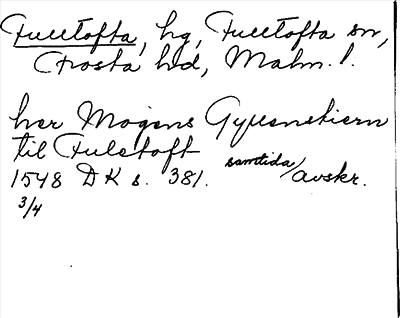 Fulltofta, hg, Fulltofta sn,
Frosta hd, Malm. l.
her Mogens Gyllenstiern
til Fulstoft
1548 DK s. 381. samtida avskr.
3/4